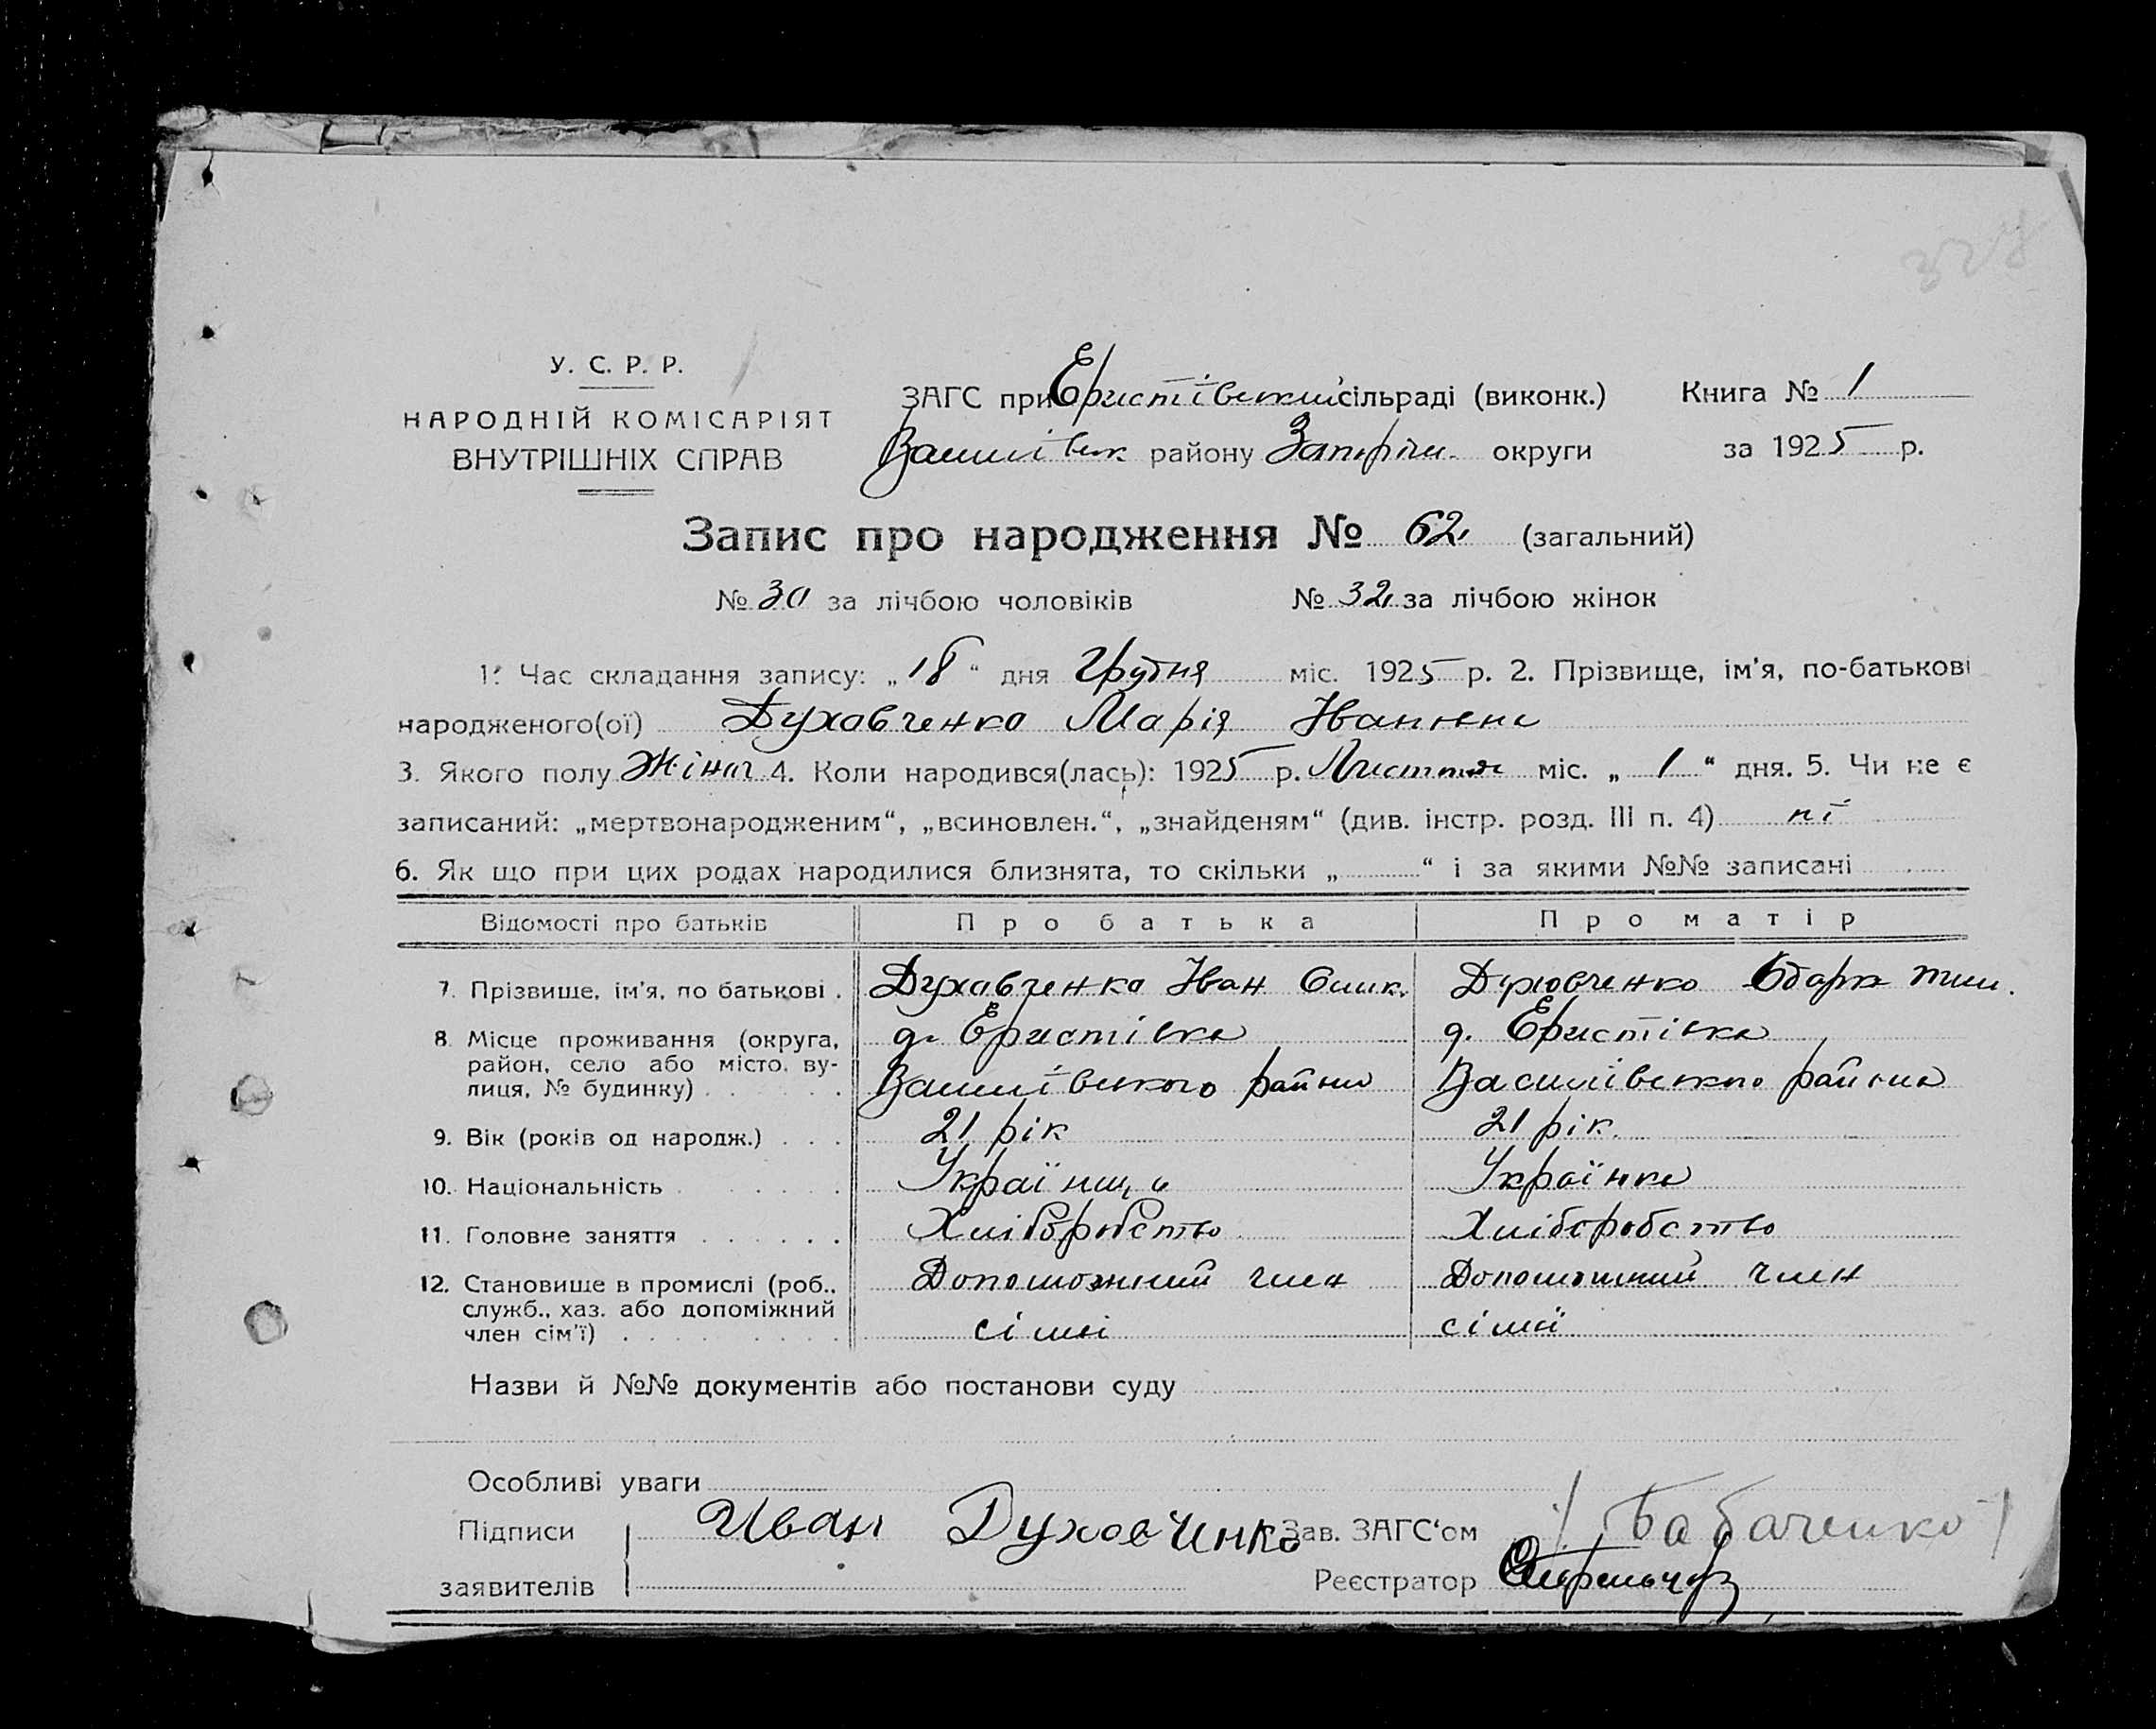 327
У. С. Р. Р.
НАРОДНІЙ КОМІСАРІЯТ
ВНУТРІШНІХ СПРАВ
ЗАГС при Еристівський сільраді (виконк.) Книга № 1
Василівськ району Запоріж. округи за 1925 р.
Запис про народження № 62 (загальний)
№ 30 за лічбою чоловіків № 32 за лічбою жінок
1. Час складання запису: „18“ дня Грудня міс. 1925 р. 2. Прізвище, ім'я, по-батькові
народженого(ої) Духовченко Марія Іванівна
3. Якого полу Жіноч 4. Коли народився(лась): 1925 р. Листопа міс. „1“ дня. 5. Чи не є
записаний: „мертвонародженим“, „всиновлен.“, „знайденям“ (див. інстр. розд. III п. 4) ні
6. Як що при цих родах народилися близнята, то скільки „ “ і за якими №№ записані
Відомості про батьків Про батька Про матір
7. Прізвище, ім'я, по батькові . Духовченко Іван Духовченко Одарк
8. Місце проживання (округа, д. Еристівка д. Еристівка
район, село або місто, ву-
лиця, № будинку) Василівського району Василівського района
9. Вік (років од народж.) . . . 21 рік 21 рік.
10. Національність Українць Українка
11. Головне заняття Хліборобство Хліборобство
12. Становище в промислі (роб., Допоможний член Допоможний член
служб., хаз. або допоміжний
член сім'ї) сімї сімї
Назви й №№ документів або постанови суду
Особливі уваги
Підписи Иван Духовчинко Зав. ЗАГС'ом / Бабаченко /
заявителів Реєстратор